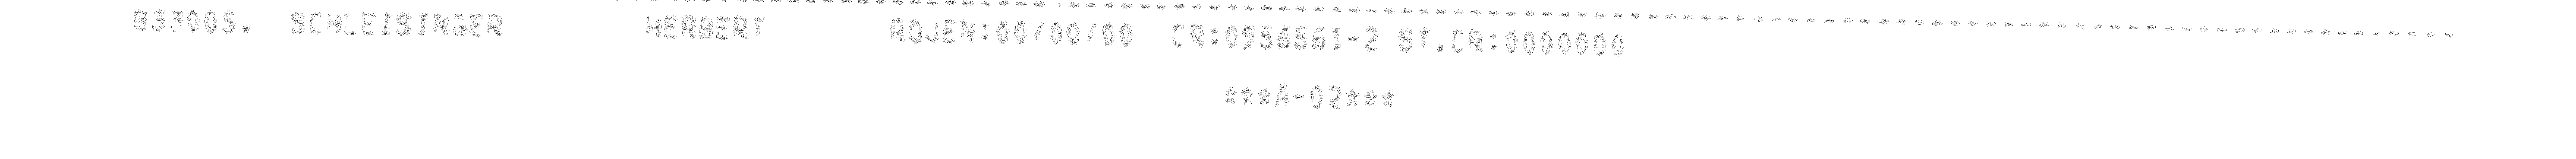 837005. SCHLEISINGER HERBERT ROJEN:00/00/00 CR:0956561-2 ST.CR:0000000
***A-02***